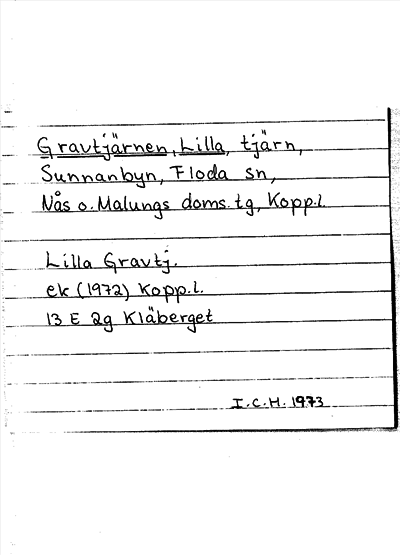 Gravtjärnen, Lilla, tjärn,
Sunnanbyn, Floda sn,
Nås o. Malungs doms. tg, Kopp.l.
Lilla Gravtj.
ek (1972) Kopp.l.
13 E 2g Kläberget
I.C.H. 1973